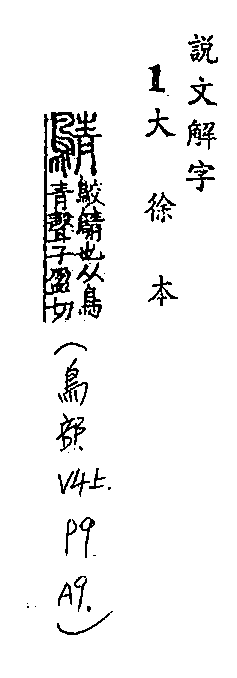 說文解字
1大徐本
鶄 鵁鶄也从鳥
青聲子盈切
(鳥部 V4上. P9 A9.)